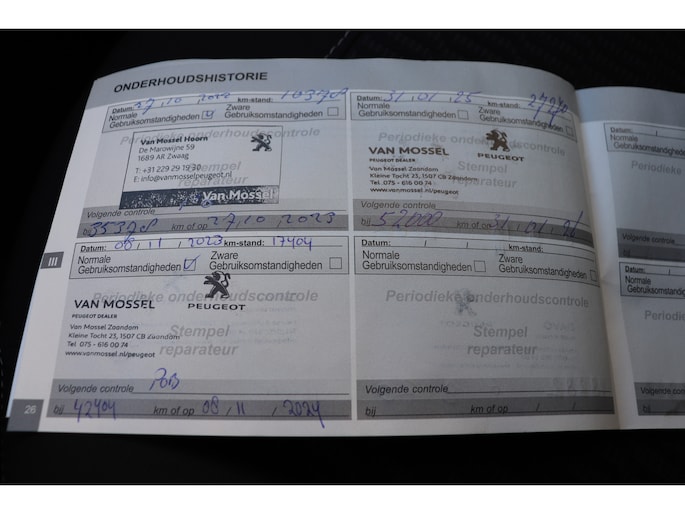 ONDERHOUDSHISTORIE
Datum: 27, 10, 2022 km-stand: 10378
Normale Gebruiksomstandigheden
Zware Gebruiksomstandigheden
Periodieke onderhoudscontrole
Van Mossel Hoorn
De Marowijne 59
1689 AR Zwaag
T: +31 229 29 19 30
E: info@vanmosselpeugeot.nl
Van Mossel
Stempel
reparateur
Volgende controle
bij 35378 km of op 27, 10, 2023
Datum: 31, 01, 25 km-stand:
Normale Gebruiksomstandigheden
Zware Gebruiksomstandigheden
Periodieke onderhoudscontrole
VAN MOSSEL
PEUGEOT DEALER
PEUGEOT
Van Mossel Zaandam
Kleine Tocht 23, 1507 CB Zaandam
Tel. 075 - 616 00 74
Stempel
reparateur
Volgende controle
bij 52000 km of op 31, 01, 26
III
Datum: 08, 11, 2023 km-stand: 17404
Normale Gebruiksomstandigheden
Zware Gebruiksomstandigheden
Periodieke onderhoudscontrole
VAN MOSSEL
PEUGEOT DEALER
PEUGEOT
Van Mossel Zaandam
Kleine Tocht 23, 1507 CB Zaandam
Tel 075 - 616 00 74
www.vanmossel.nl/peugeot
Stempel
reparateur
Volgende controle
bij 42404 km of op 08, 11, 2024
Datum: / / km-stand:
Normale Gebruiksomstandigheden
Zware Gebruiksomstandigheden
Periodieke onderhoudscontrole
Stempel
reparateur
Volgende controle
bij km of op / /
26
Datum:
Normale
Gebruiksomst
Volgende controle
bij
Datum:
Normale
Gebruiksom
Volgende
bij